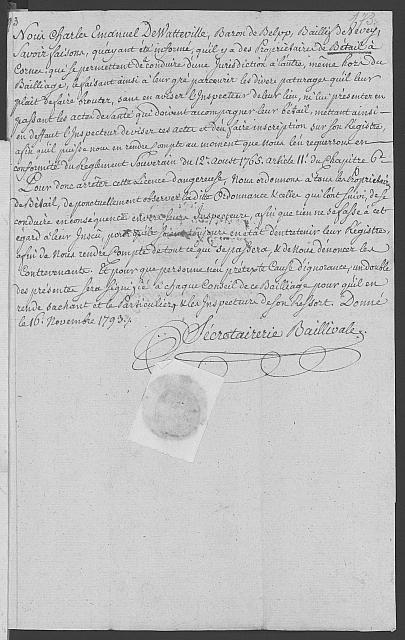 Nous Charles Emanuel DeWatteville, Baron de Belp, Baillif de Vevey,
Savoir faisons, qu'ayant été informé, qu'il y a des Propriétaires de Bétail à
Cornes que se permettent de conduire d'une Jurisdiction à l'autre, même hors du
Bailliage, le faisant ainsi à leur gré parcourir les divers paturages qu'il leur
plait de faire brouter, sans en aviser l'Inspecteur de leur lieu, ni lui présenter en
passant les actes de santé qui doivent accompagner leur bétail, mettant ainsi
en deffaut l'Inspecteur de viser ces actes et d'en faire inscription sur son Registre,
afin qu'il puisse nous en rendre Compte au moment que Nous l'en requerront en
conformité du Règlement Souverain du 12e Aoust 1765. article 11e du Chapitre 6e
Pour donc arreter cette Licence dangereuse, Nous ordonnons à tous les Propriétaires
de Bétail, de ponctuellement observer la ditte Ordonnance & celles qui l'ont suivi, de se
conduire en conséquence envers leurs Inspecteurs, afin que rien ne se fasse à cet
égard à leur Insçu, toujours en état d'entretenir leur Registre,
afin de Nous rendre Compte de tout ce qui se passera, & de Nous dénoncer les
Contrevenants. Et pour que personne n'en prétexte Cause d'ignorance, un double
des présentes sera signifié à chaque Conseil de ce Bailliage pour qu'il en
rende sachant et le Particulier, & les Inspecteurs de son Ressort. Donné
le 16e Novembre 1793.
Sécrotairerie Baillivale.